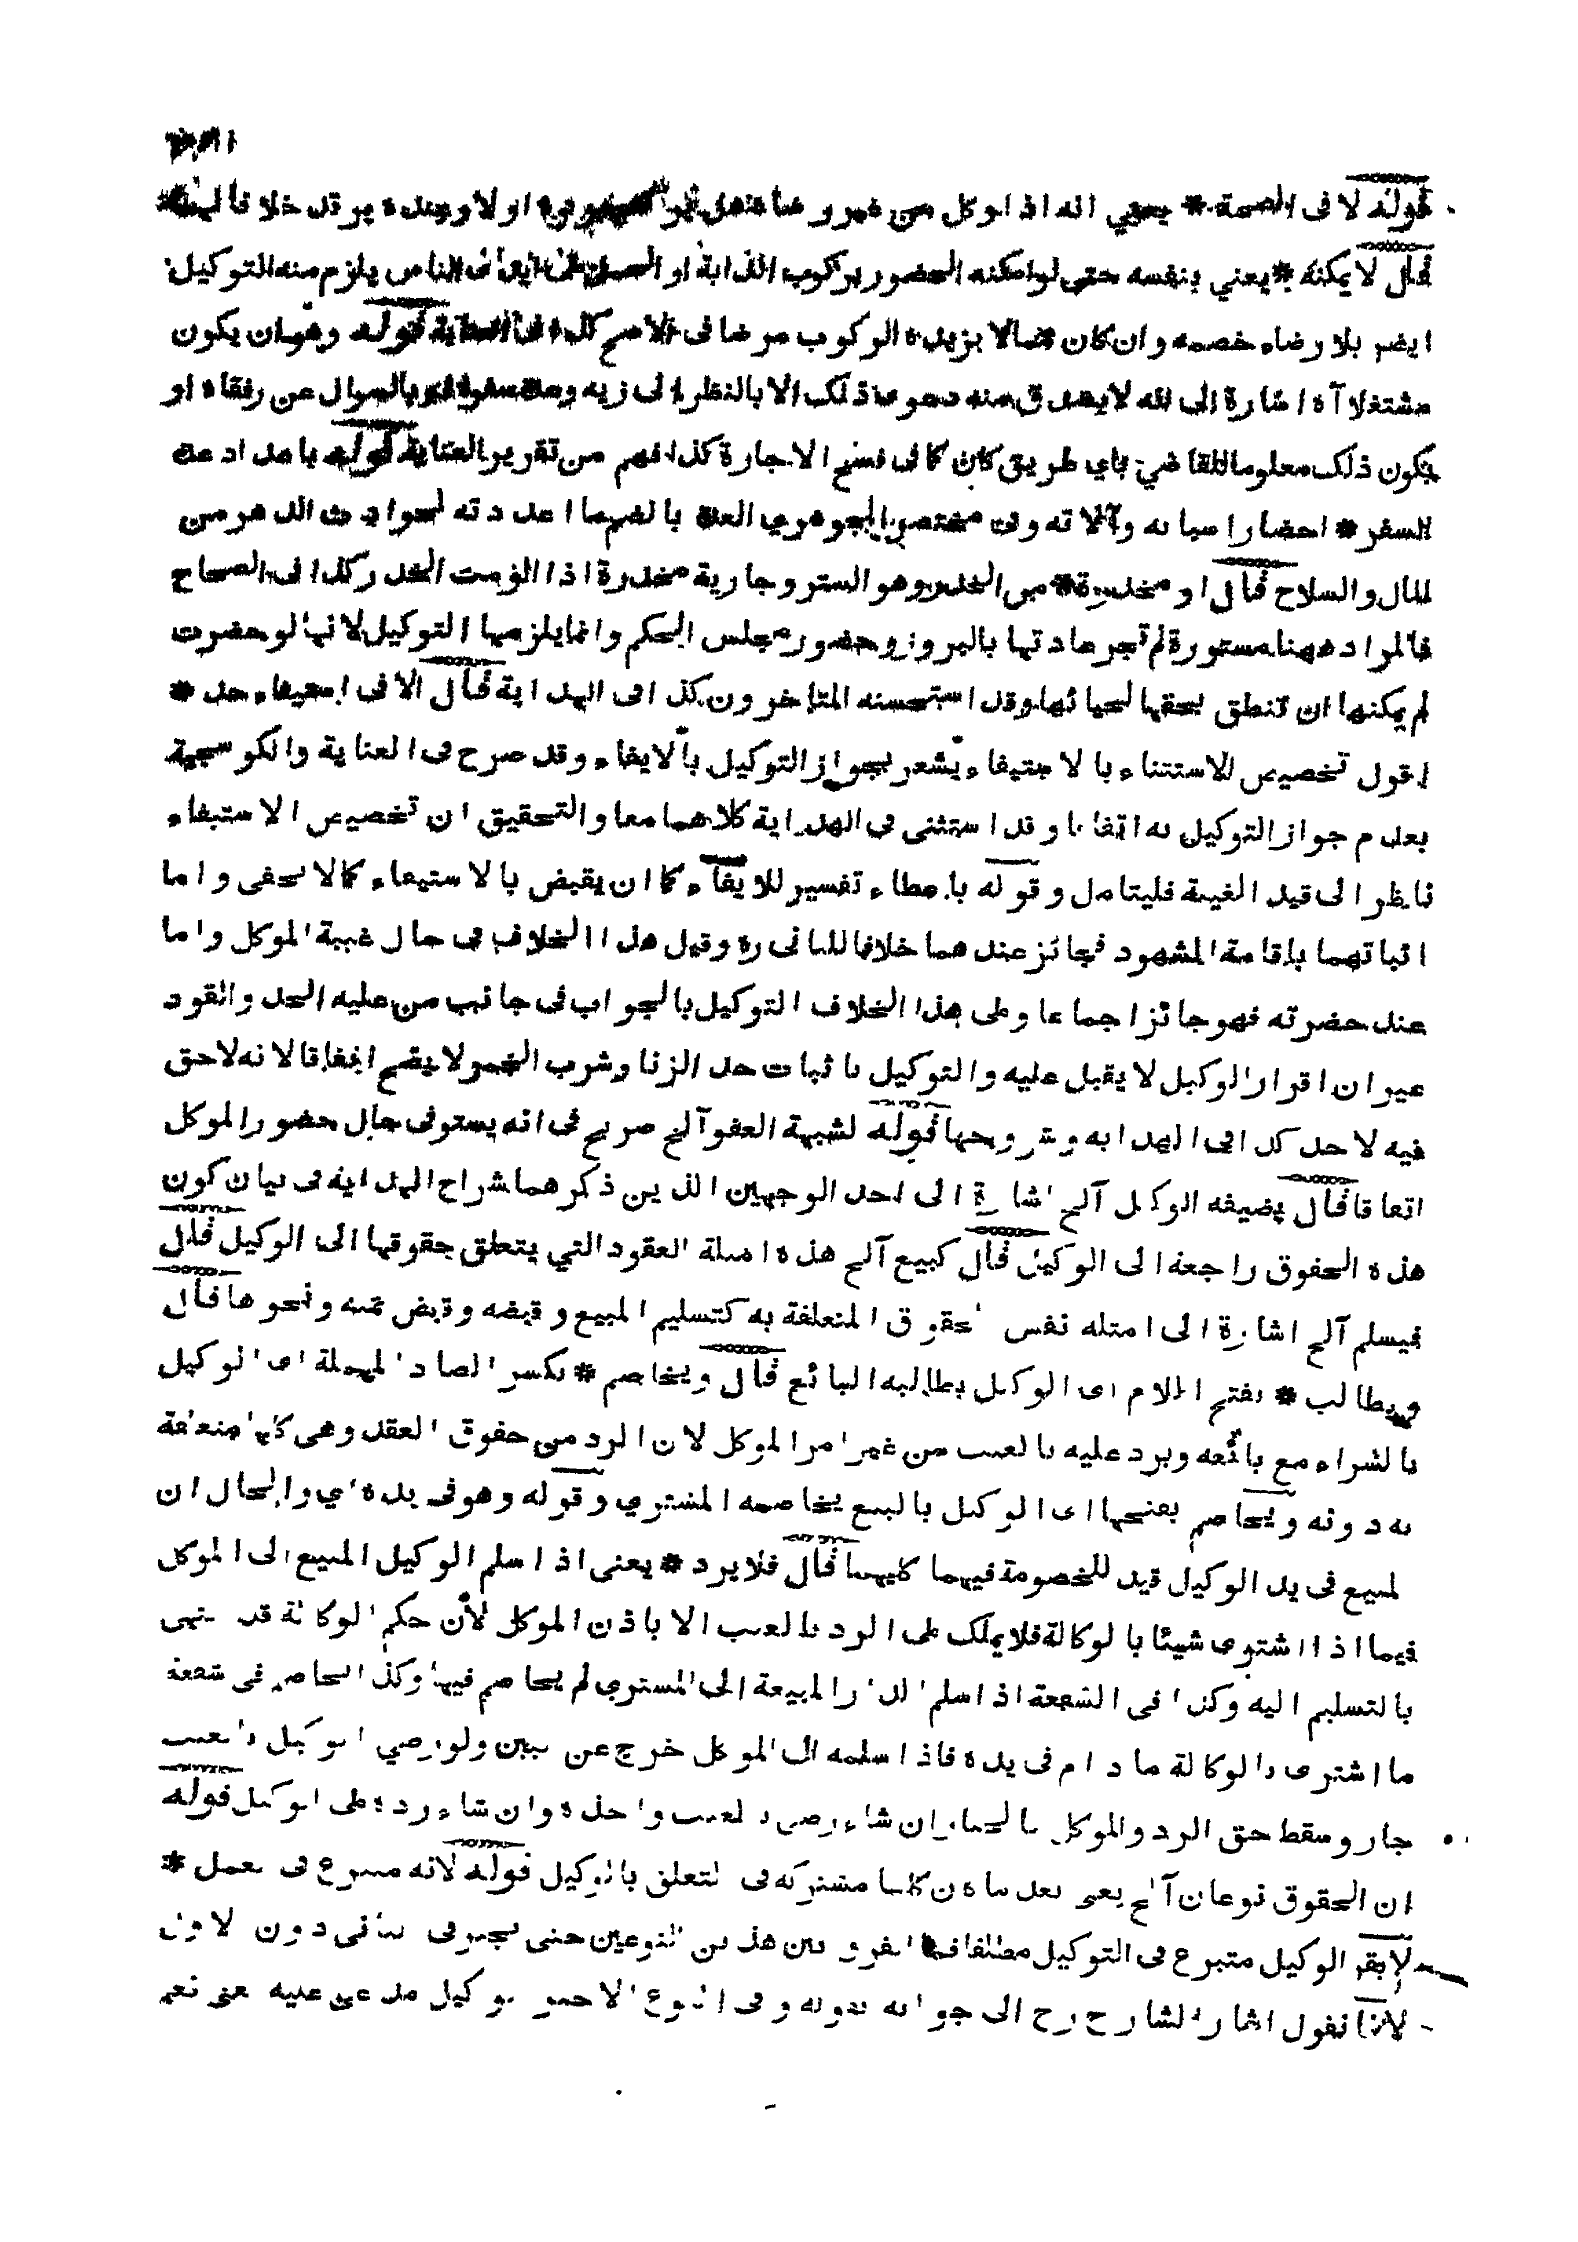 قوله لا فى الصحة * يعني انه اذا وكل من غير رضا اولا وعنده يرتد خلافا لهما *
قال لا يمكنه * يعني بنفسه حتى لو امكنه الحضور بركوب الدابة او الناس يلزم منه التوكيل
ايضر بلا رضاء خصمه وان كان لا يزيده الركوب مرضا فى الاصح كذا فى قوله وهو ان يكون
مشتغلا آه اشارة الى انه لا يصدق منه دعوى ذلك الا بالنظر الى زيه بالسوال عن رفقاه او
يكون ذلك معلوما للقاضي باي طريق كان كما فى فسخ الاجارة كذا فهم من تقرير العناية قوله باعداد عدة
السفر * احضار اسبابه وآلاته وفى مختصر الجوهري العدة بالضم ما اعددته لحوادث الدهر من
المال والسلاح قال او مخدرة * من الخدر وهو الستر وجارية مخدرة اذا الزمت الخدر كذا فى الصحاح
فالمراد ههنا مستورة لم تجر عادتها بالبروز وحضور مجلس الحكم وانما يلزمها التوكيل لانها لو حضرت
لم يمكنها ان تنطق بحقها لحيائها وقد استحسنه المتاخرون كذا فى الهداية قال الا فى استيفاء حد *
اقول تخصيص الاستثناء بالاستيفاء يشعر بجواز التوكيل بالايفاء وقد صرح فى العناية والكو سجية
بعدم جواز التوكيل به اتفاقا وقد استثنى فى الهداية كلاهما معا والتحقيق ان تخصيص الاستيفاء
ناظر الى قيد الغيبة فليتامل وقوله باعطاء تفسير للايفاء كما ان يقبض بالاستيفاء كما لا يخفى واما
اثباتهما باقامة الشهود فجائز عندهما خلافا للثانى ره وقيل هذا الخلاف فى حال غيبة الموكل واما
عند حضرته فهو جائز اجماعا وعلى هذا الخلاف التوكيل بالجواب فى جانب من عليه الحد والقود
غير ان اقرار الوكيل لا يقبل عليه والتوكيل باثبات حد الزنا وشرب الخمر لا يصح اتفاقا لانه لا حق
فيه لاحد كذا فى الهداية وشروحها قوله لشبهة العفو آلخ صريح فى انه يستوفى حال حضور الموكل
اتفاقا قال يضيفه الوكيل آلخ اشارة الى احد الوجهين الذين ذكرهما شراح الهداية فى بيان كون
هذه الحقوق راجعة الى الوكيل قال كبيع آلخ هذه امثلة العقود التي يتعلق حقوقها الى الوكيل قال
فيسلم آلخ اشارة الى امثلة نفس الحقوق المتعلقة به كتسليم المبيع وقبضه وقبض ثمنه ونحوها قال
ويطالب * بفتح اللام اى الوكيل يطالبه البائع قال ويخاصم * بكسر الصاد المهملة اى الوكيل
بالشراء مع بائعه ويرد عليه بالعيب من غير امر الموكل لان الرد من حقوق العقد وهى كلها متعلقة
به دونه ويخاصم بفتحها اى الوكيل بالبيع يخاصمه المشتري وقوله وهو فى يده اي والحال ان
لمبيع فى يد الوكيل قيد للخصومة فيهما كليهما قال فلا يرد * يعنى اذا سلم الوكيل المبيع الى الموكل
فيما اذا اشترى شيئا بالوكالة فلا يملك على الرد بالعيب الا باذن الموكل لأن حكم الوكالة قد انتهى
بالتسليم اليه وكذا فى الشفعة اذا سلم الدار المبيعة الى المشتري لم يخاصم فيها وكذا يخاصم فى شفعة
ما اشترى بالوكالة مادام فى يده فاذا سلمه الى الموكل خرج عن البين ولو رضي الوكيل بالعيب
جاز وسقط حق الرد والموكل بالخيار ان شاء رضى بالعيب واخذه وان شاء رده على الوكيل قوله
ان الحقوق نوعان آلخ يعنى بعد ما فى التعلق بالوكيل قوله لانه متبرع فى العمل *
لا يقر الوكيل متبرع فى التوكيل مطلقا بين هذين النوعين حتى يجبر فى الثانى دون الاول
لانا نقول اشار الشارح رح الى جوابه بقوله وفى النوع الاخير الوكيل مدعى عليه يعنى نعم